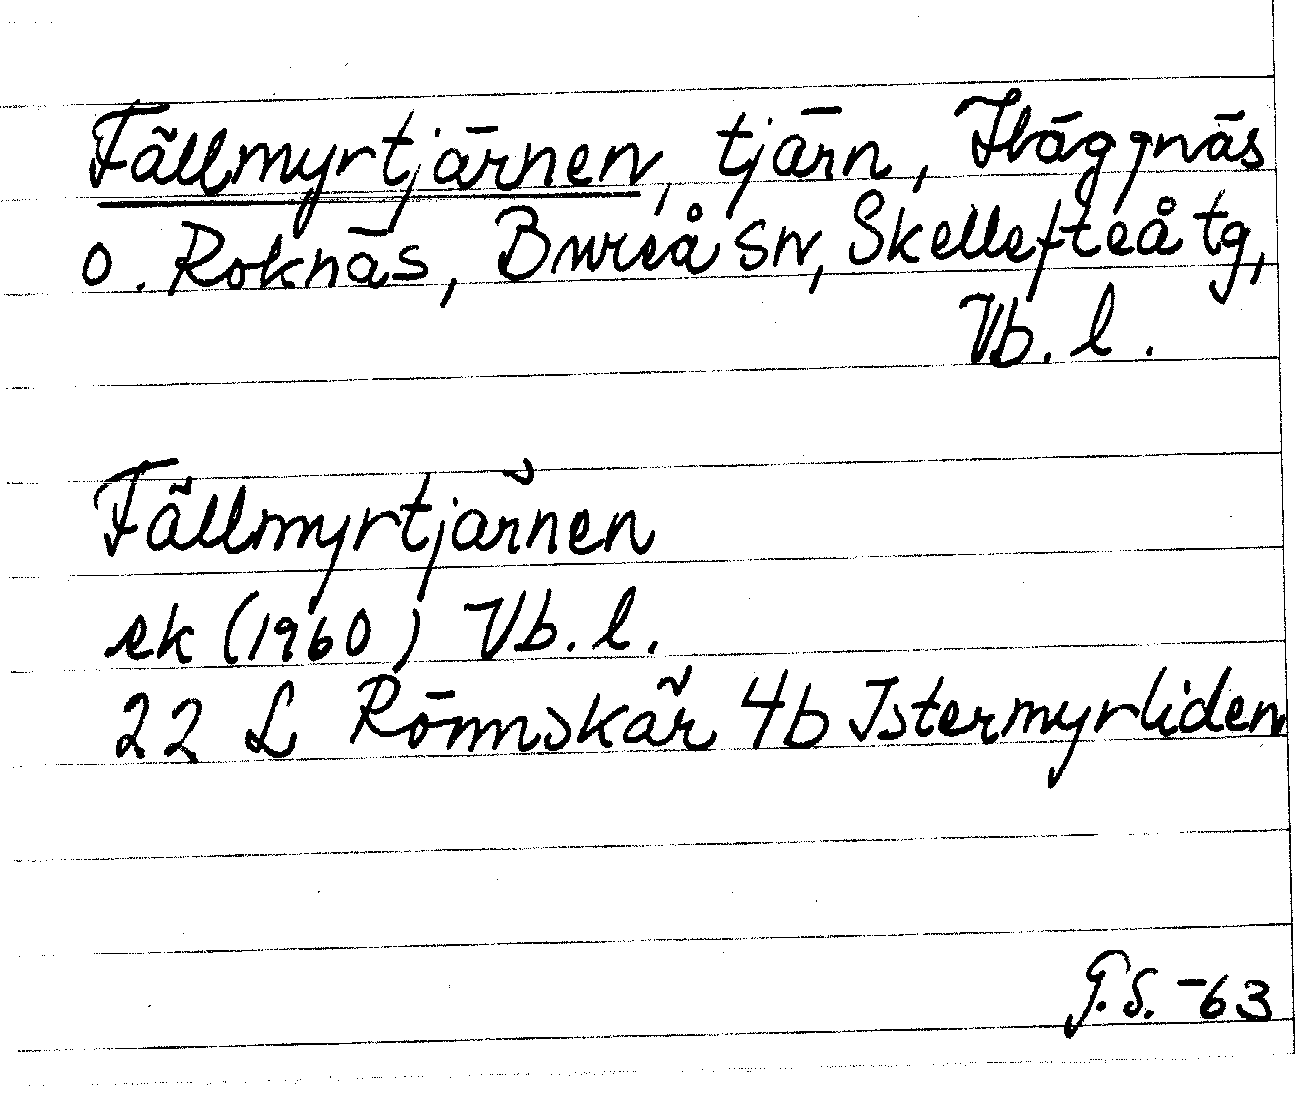 Fällmyrtjärnen, tjärn, Häggnäs
o. Roknäs, Bureå sn, Skellefteå tg,
Vb. l.
Fällmyrtjärnen
ek (1960) Vb. l.
22 L Rönnskär 4b Istermyrliden
G.S. -63